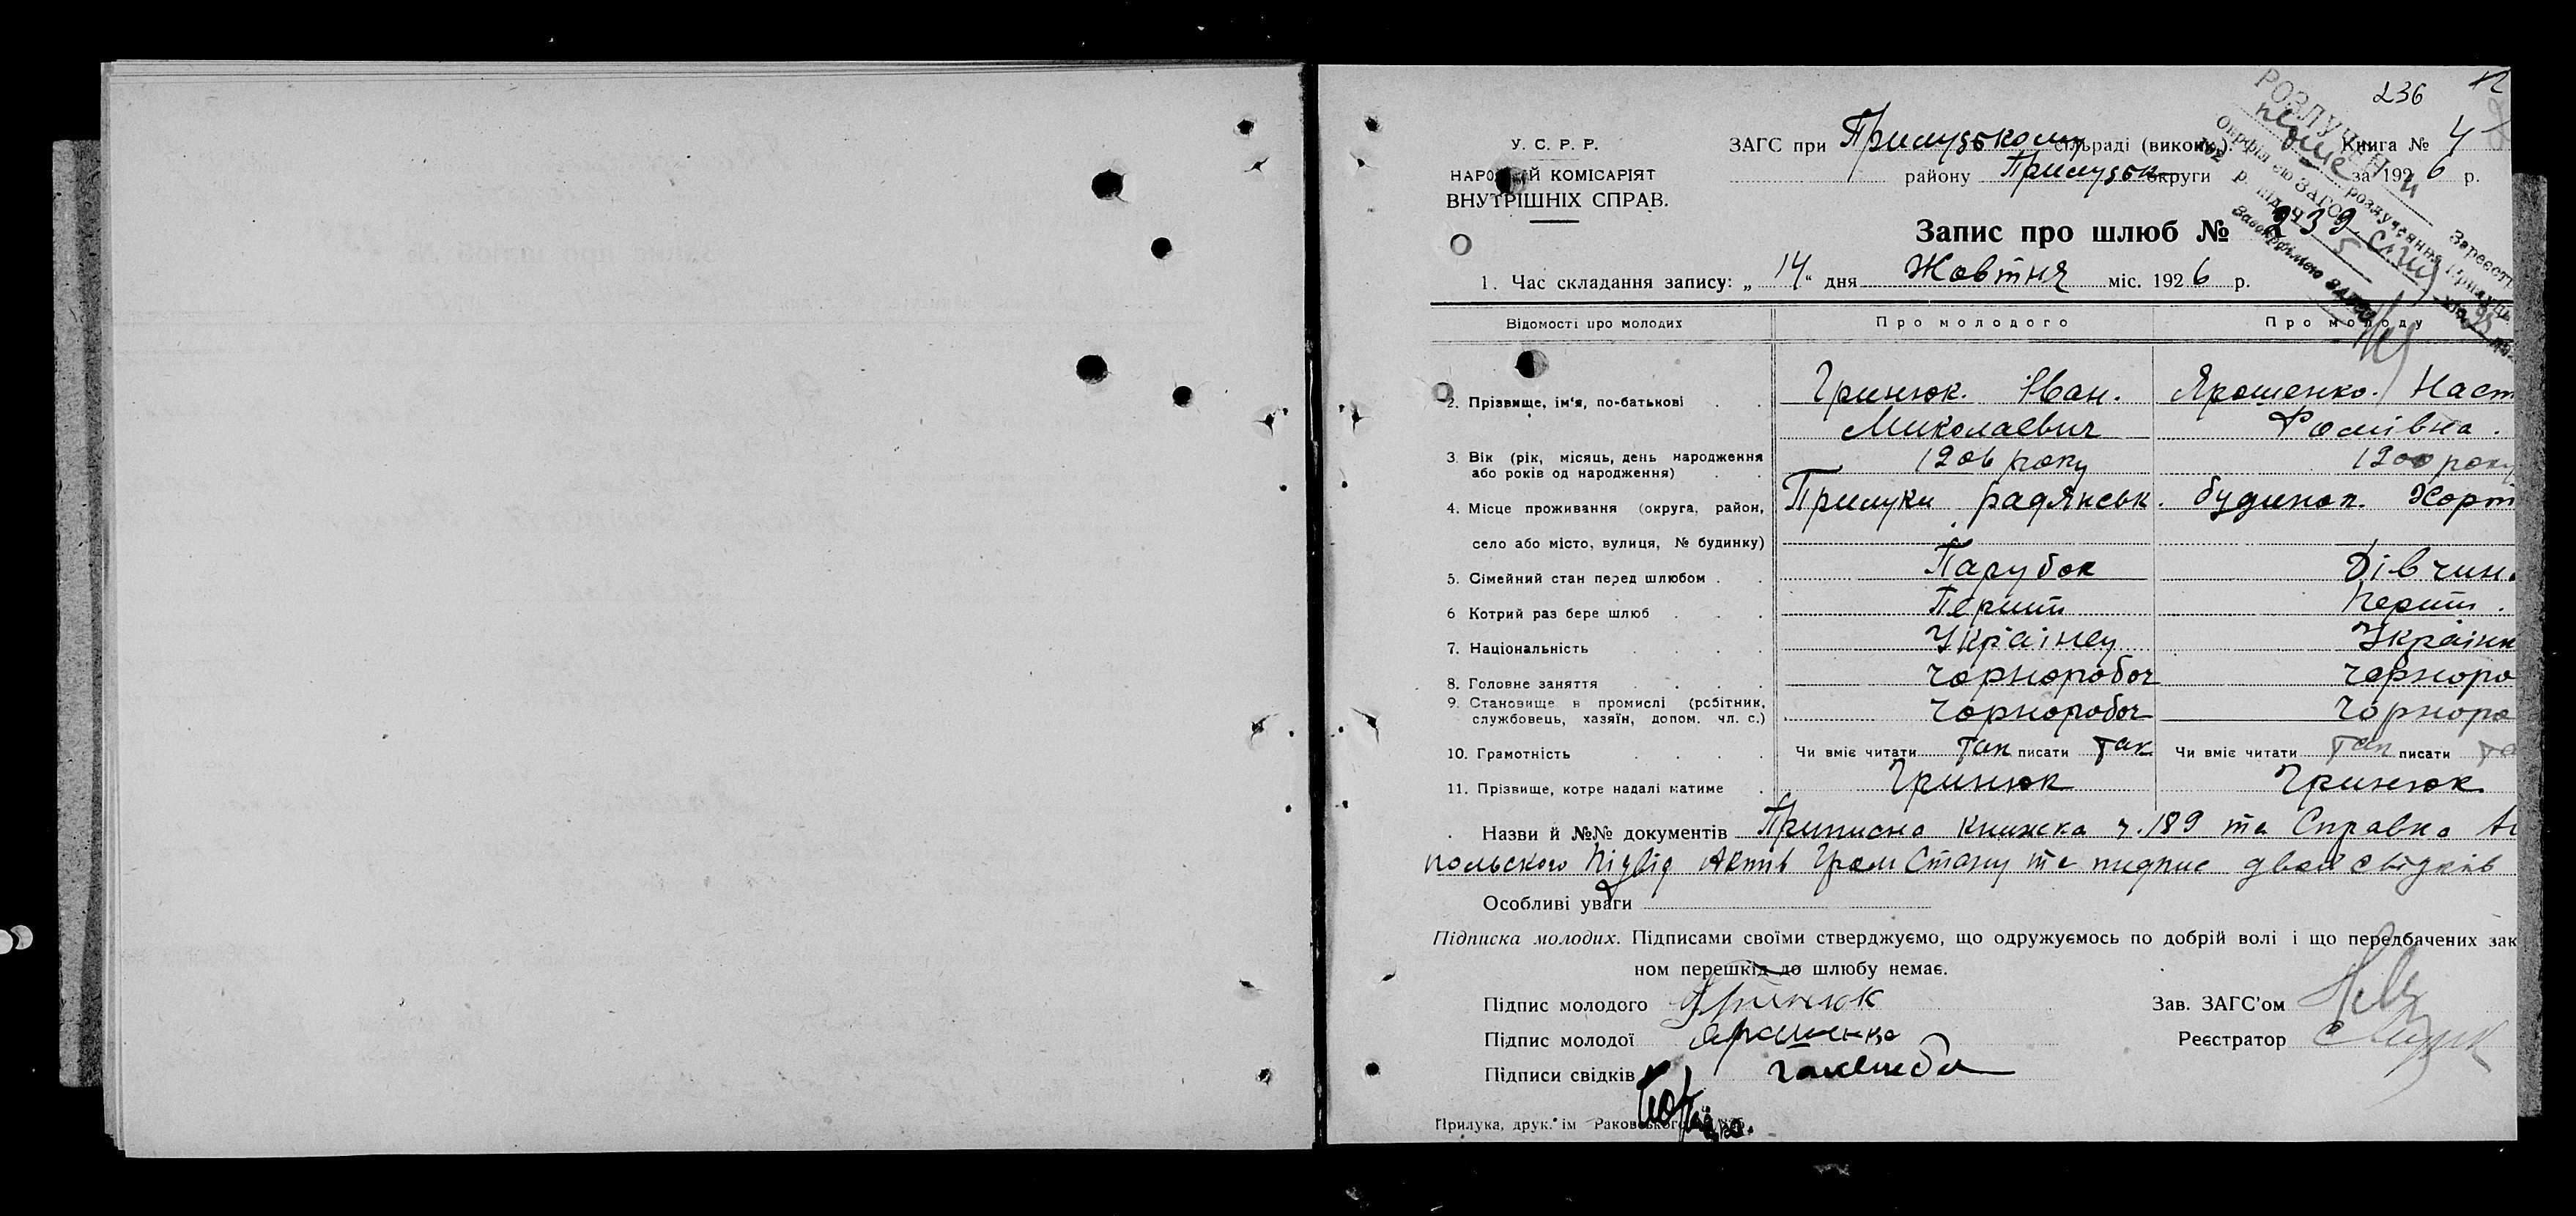 236
У. С. Р. Р.
НАРОДНІЙ КОМІСАРІЯТ
ВНУТРІШНІХ СПРАВ.
ЗАГС при Прилузькому сільраді (виконк.). Книга № 4
району Прилузьк округи за 1926 р.
РОЗЛУЧЕН
Запис про шлюб № 239
1. Час складання запису: „14“ дня Жовтня міс. 1926 р.
Відомості про молодих Про молодого Про молоду
2. Прізвище, ім'я, по-батькові Гринюк. Іван. Ярошенко. Наст
Миколаевич Фомівна.
3. Вік (рік, місяць, день народження 1906 року 1900 року
або років од народження)
4. Місце проживання (округа, район, Прилуки радянськ. будинок. Хорт
село або місто, вулиця, № будинку)
5. Сімейний стан перед шлюбом Парубок Дівчина
6 Котрий раз бере шлюб Перший Перш.
7. Національність Українец Українк
8. Головне заняття Чорноробоч Чорноро
9. Становище в промислі (робітник, Чорноробоч Чорноро
службовець, хазяїн, допом. чл. с.)
10. Грамотність Чи вміє читати так писати так Чи вміє читати так писати та
11. Прізвище, котре надалі матиме Гринюк Гринюк
Назви й №№ документів Приписна книжка ч. 189 та Справка
польского Підвід Актів Гром Стану та підпис двох свідків
Особливі уваги
Підписка молодих. Підписами своїми стверджуємо, що одружуємось по добрій волі і що передбачених зак
ном перешкід до шлюбу немає.
Підпис молодого Гринюк Зав. ЗАГС'ом
Підпис молодої Ярошенко Реєстратор
Підписи свідків
Прилука, друк. ім Раковського